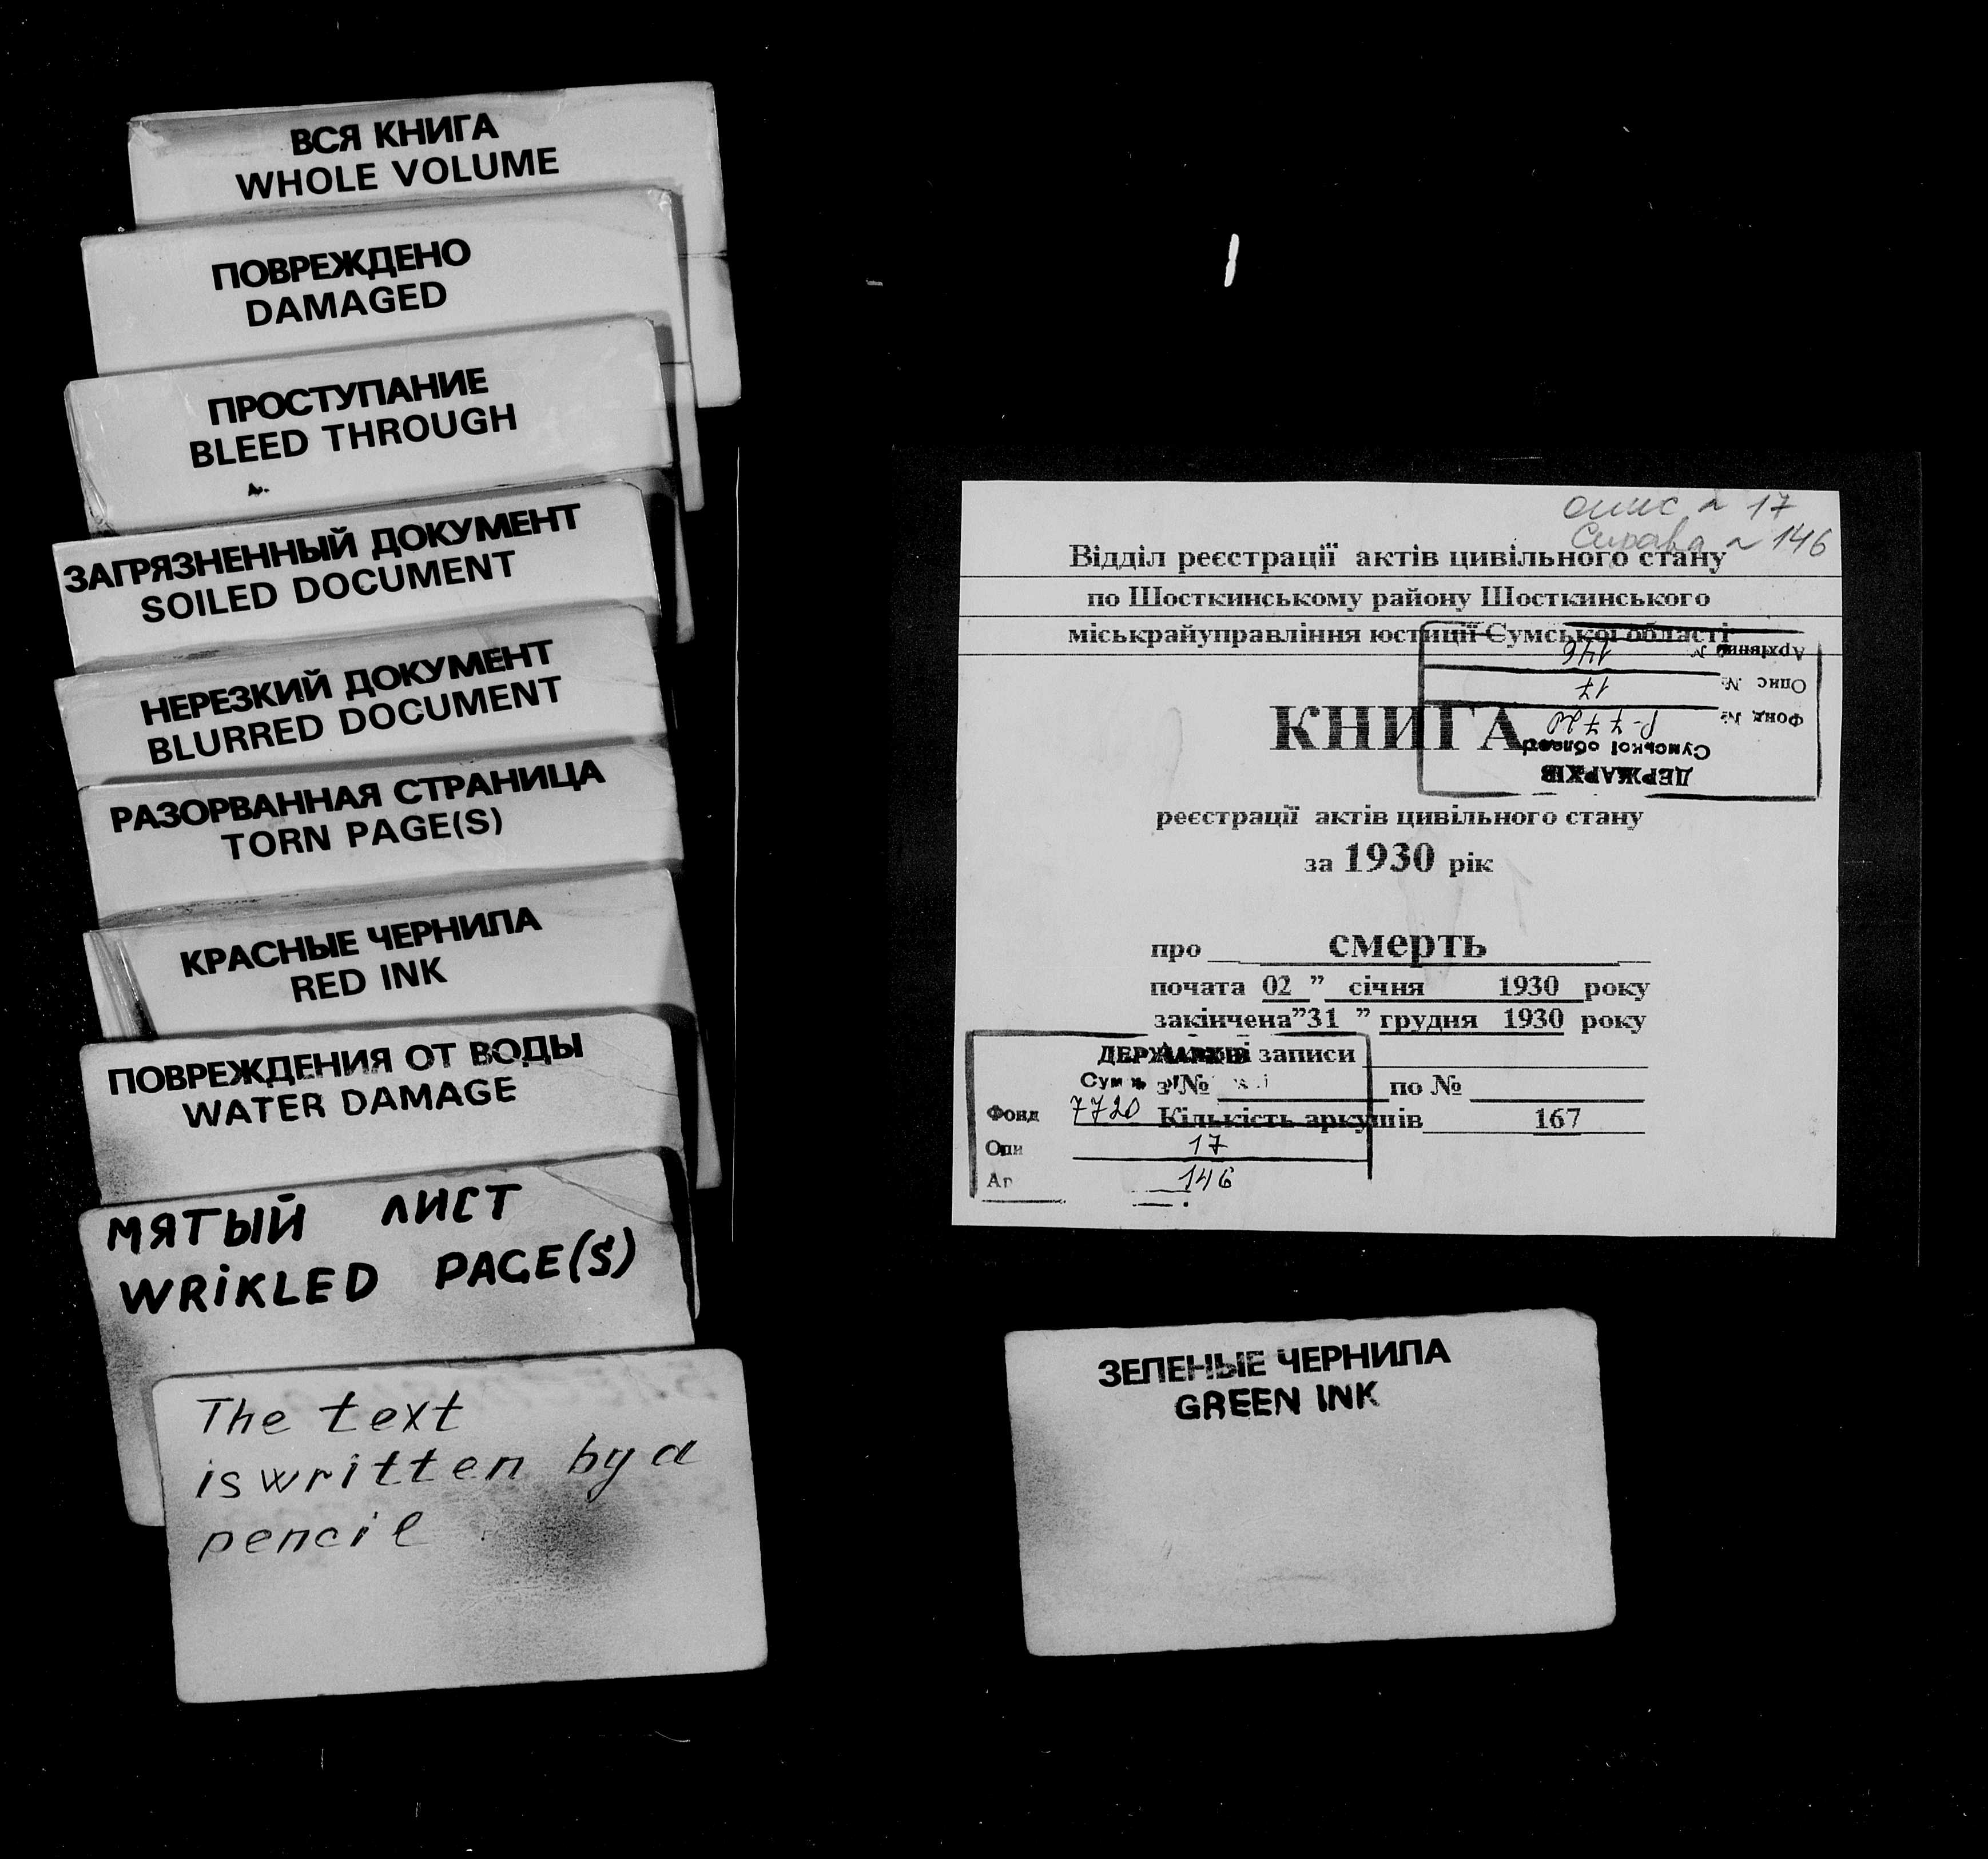 ВСЯ КНИГА
WHOLE VOLUME
ПОВРЕЖДЕНО
DAMAGED
ПРОСТУПАНИЕ
BLEED THROUGH
ЗАГРЯЗНЕННЫЙ ДОКУМЕНТ
SOILED DOCUMENT
НЕРЕЗКИЙ ДОКУМЕНТ
BLURRED DOCUMENT
РАЗОРВАННАЯ СТРАНИЦА
TORN PAGE(S)
КРАСНЫЕ ЧЕРНИЛА
RED INK
ПОВРЕЖДЕНИЯ ОТ ВОДЫ
WATER DAMAGE
МЯТЫЙ ЛИСТ
WRIKLED PAGE(S)
The text
is written by a
pencil
опис № 17
Справа № 146
Відділ реєстрації актів цивільного стану
по Шосткинському району Шосткинського
міськрайуправління юстиції Сумської області
КНИГА
ДЕРЖАРХІВ
Сумської області
Фонд № Р-7720
Опис № 17
Архівний № 146
реєстрації актів цивільного стану
за 1930 рік
про смерть
почата 02 " січня 1930 року
закінчена "31 " грудня 1930 року
записи
з № по №
Кількість аркушів 167
ДЕРЖАРХІВ
Фонд 7720
Опи 17
Ар 146
ЗЕЛЕНЫЕ ЧЕРНИЛА
GREEN INK